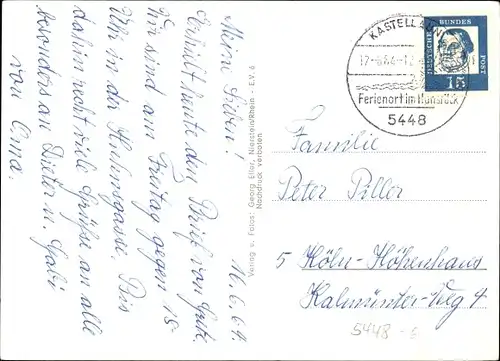 16.6.64.
Meine Lieben!
Erhielt heute den Brief von Gute.
Wir sind am Freitag gegen 15
Uhr in der Huhnsgasse. Bis
dahin recht viele Grüße an alle
besonders an Dieter u. Gabi
von Oma.
Verlag u. Fotos: Georg Eiler, Nierstein/Rhein - E.V. 6
Nachdruck verboten
KASTELLAUN
17.-6.64-12
Ferienort im Hunsrück
5448
DEUTSCHE BUNDES POST
15
Familie
Peter Piller
5 Köln-Höhenhaus
Kalmünter-Weg 4
5448